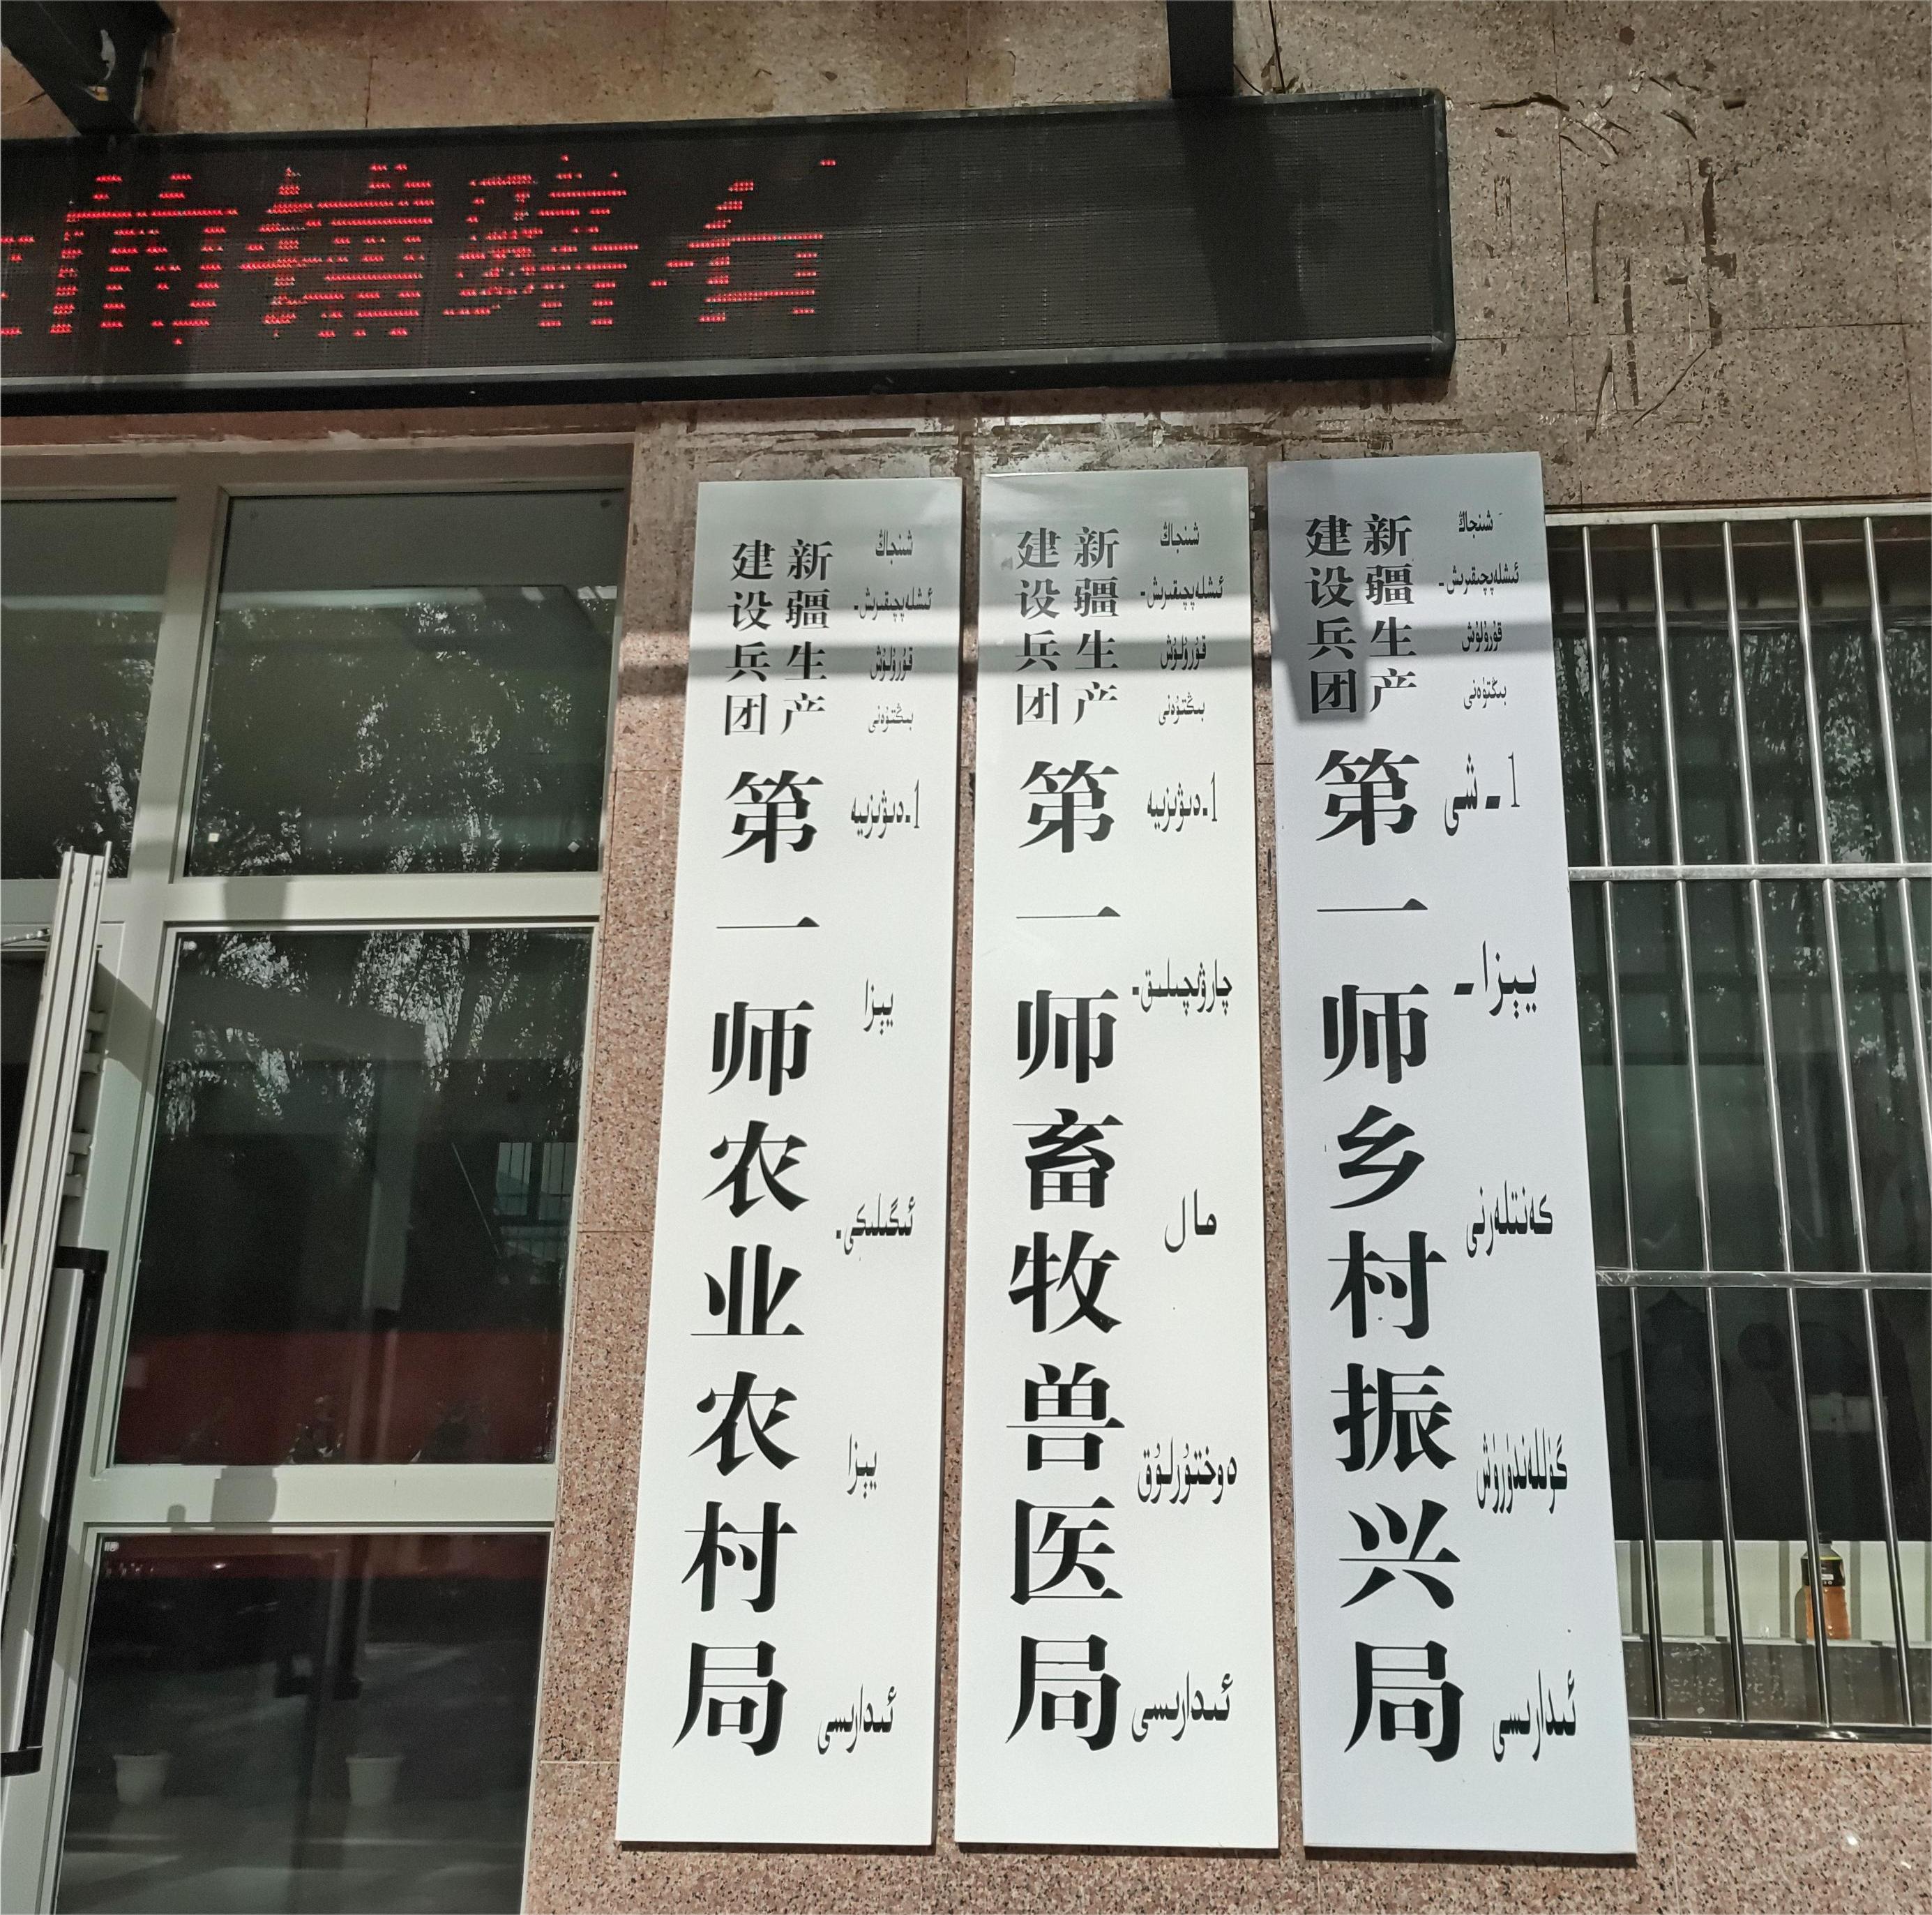 的镇踏石
新疆生产
建设兵团
第一师农业农村局
شىنجاڭ
ئىشلەپچىقىرىش-
قۇرۇلۇش
بىڭتۇەنى
1-دىۋىزىيە
يېزا
ئىگىلىكى-
يېزا
ئىدارىسى
新疆生产
建设兵团
第一师畜牧兽医局
شىنجاڭ
ئىشلەپچىقىرىش-
قۇرۇلۇش
بىڭتۇەنى
1-دىۋىزىيە
چارۋىچىلىق-
مال
دوختۇرلۇق
ئىدارىسى
新疆生产
建设兵团
第一师乡村振兴局
شىنجاڭ
ئىشلەپچىقىرىش-
قۇرۇلۇش
بىڭتۇەنى
1-شى
يېزا-
كەنتلەرنى
گۈللەندۈرۈش
ئىدارىسى